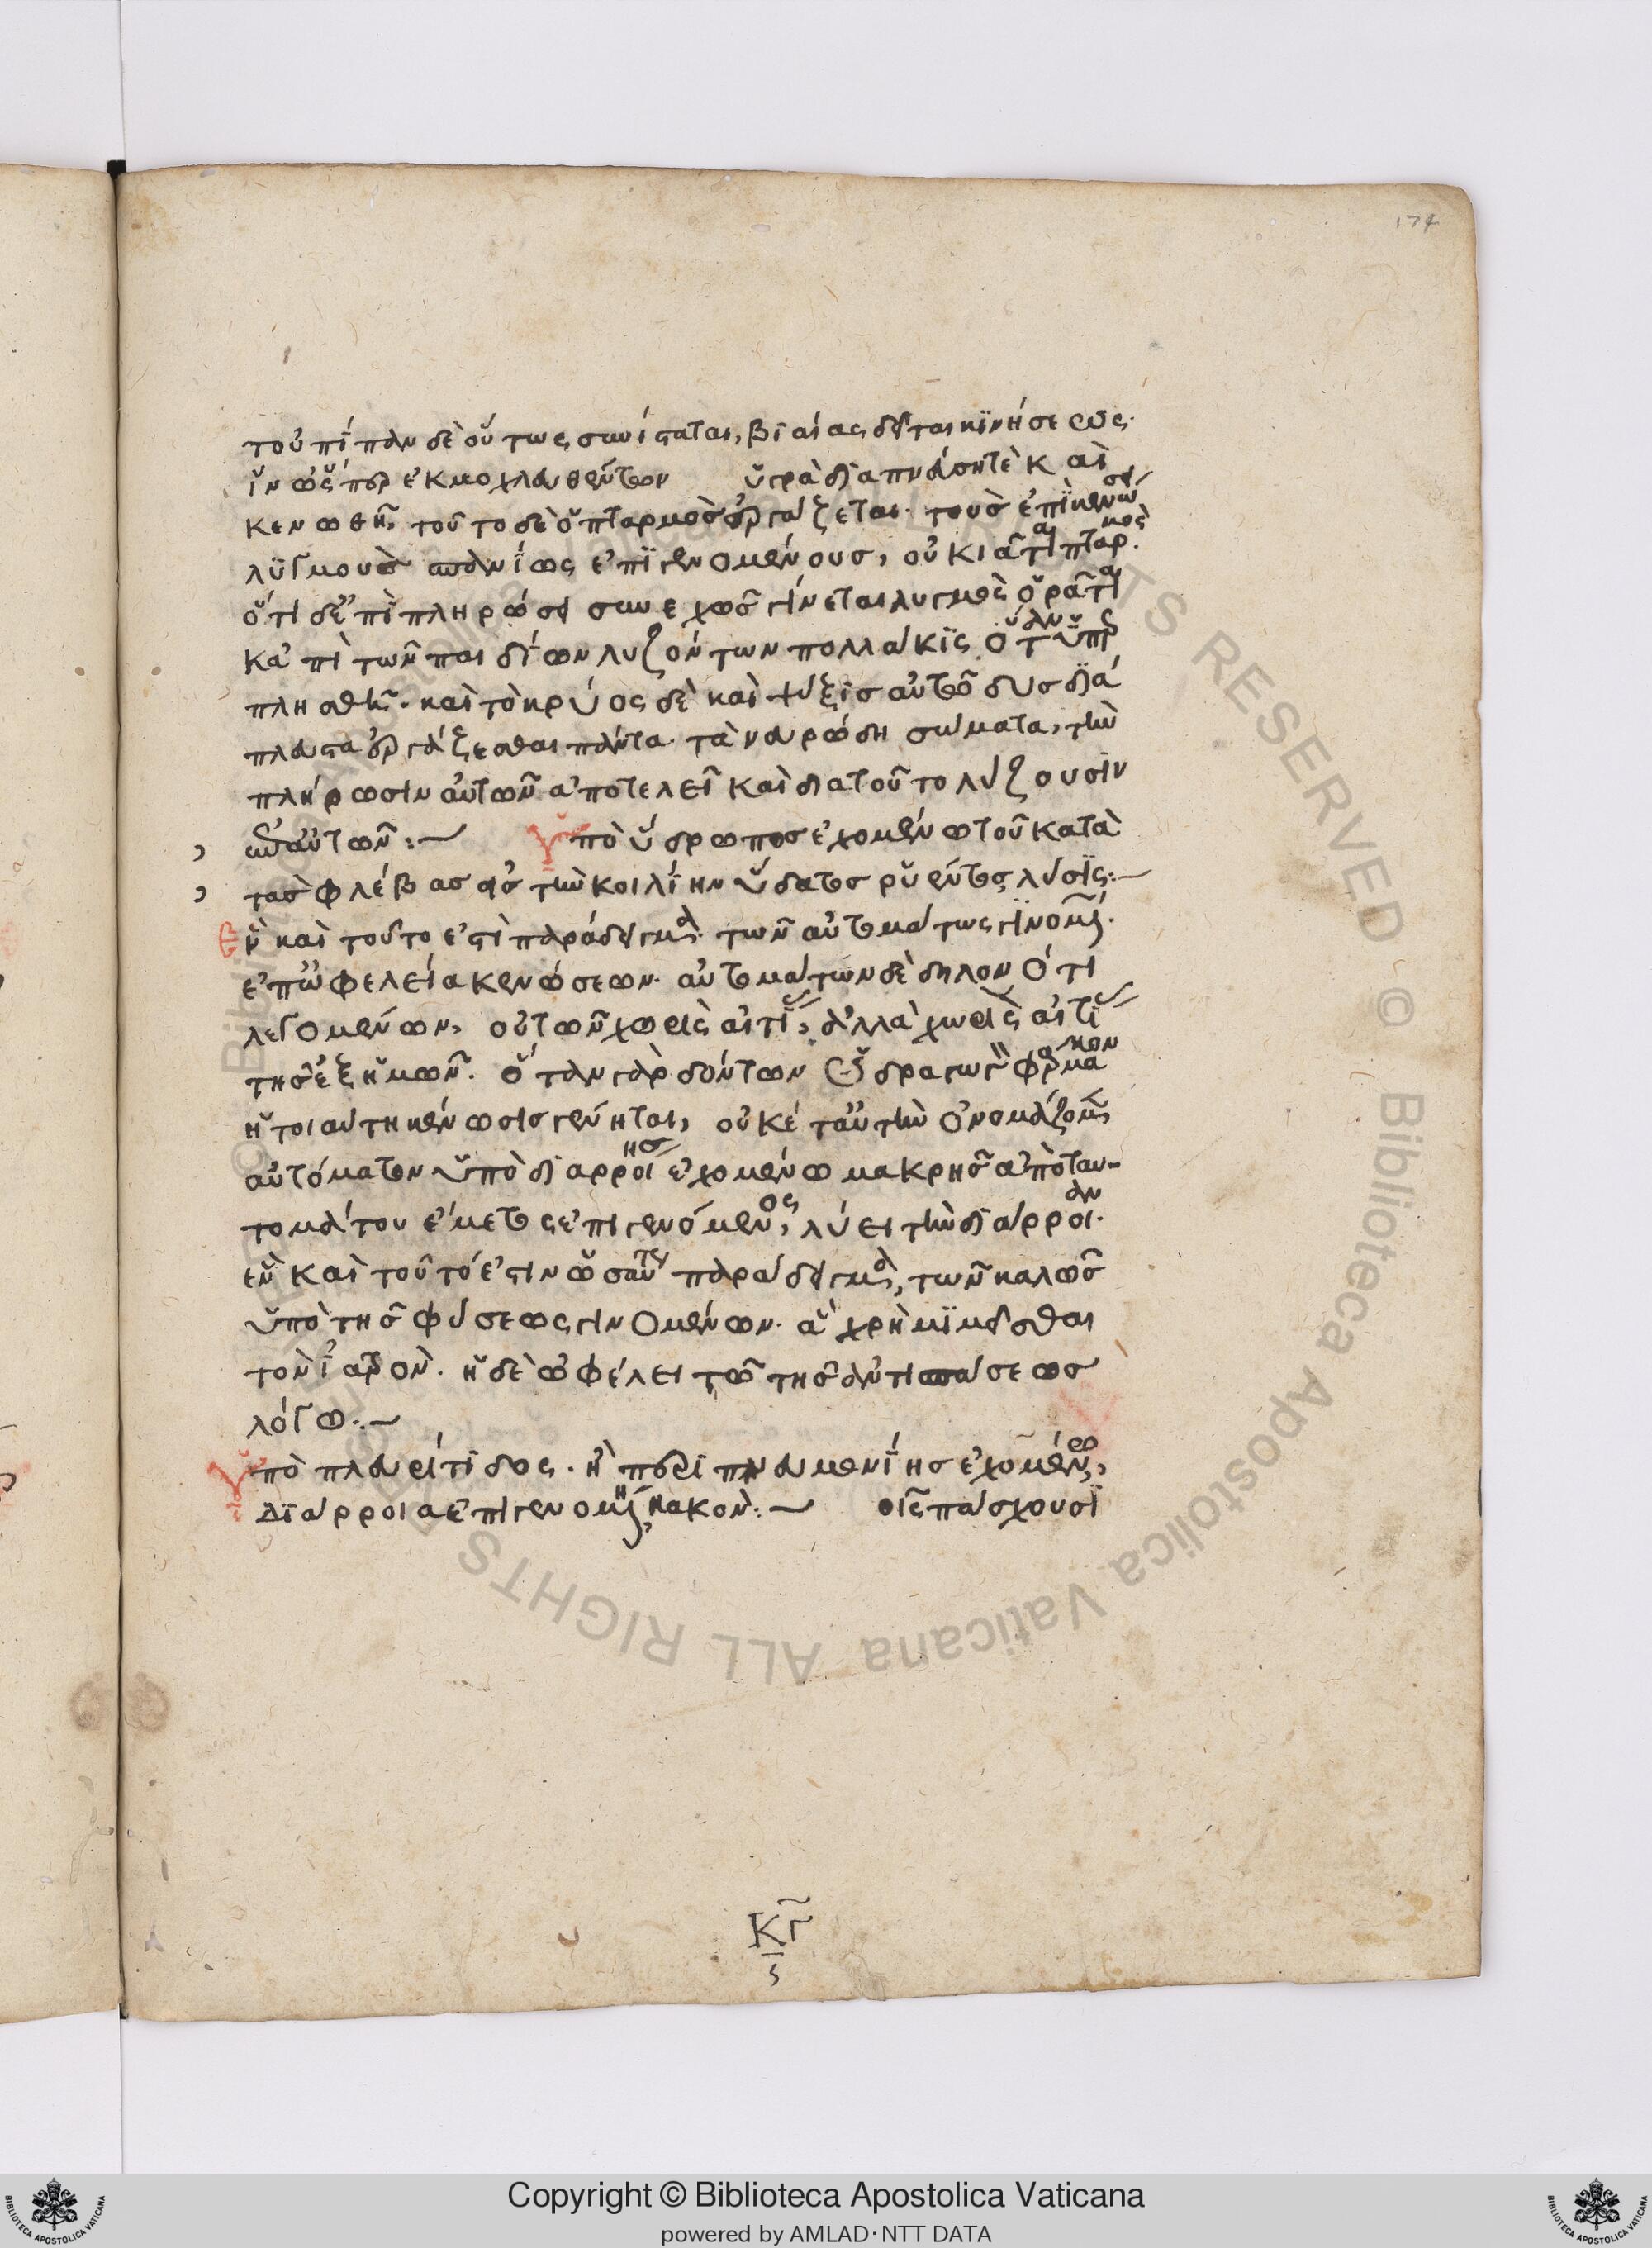 174
τοὐπίπαν δὲ οὕτως συνίσταται, βιαίας δεῖται κινήσεως.
ἵν' ὥσπερ ἐκμοχλευθέντων ὑγρὰ διαπνεύσητε καὶ
κενωθῆ, τοῦτο δὲ ὁ πταρμὸς ἐργάζεται. τοὺς ἐπὶ κενώσει
λυγμοὺς σπανίως ἐπιγενομένους, οὐκ ἰᾶται πταρμὸς.
ὅτι δ' ἐπὶ πληρώσει συνεχῶς γίνεται λυγμὸς ὁρᾶται
κἀπὶ τῶν παιδίων λυζόντων πολλάκις ὅταν ὑπερ
πλησθῆ. καὶ τὸ κρύος δὲ καὶ ψύξις αὐτὸ δυσδιά
πνευστα ἐργάζεσθαι πάντα τὰ νευρώδη σώματα, τὴν
πλήρωσιν αὐτῶν ἀποτελεῖ καὶ διὰ τοῦτο λύζουσιν
ἐπ' αὐτῶν:~ Ὑπὸ ὕδρωπος ἐχομένω τοῦ κατὰ
τὰς φλέβας εἰς τὴν κοιλίην ὕδατος ῥυέντος λύσις:~
Ἓν καὶ τοῦτο ἐστὶ παράδειγμα τῶν αὐτομάτως γινομέ.
ἐπ' ὠφελεία κενώσεων. αὐτομάτων δὲ δηλονότι
λεγομένων, οὐ τῶν χωρὶς αἰτίας, ἀλλὰ χωρὶς αἰτίας
τῆς ἐξ ἡμῶν. ὅταν γὰρ δόντων ὑδραγωγὸν φάρμακον
ἡ τοιαύτη κένωσις γένηται, οὐκέτ' αὐτὴν ὀνομάζομεν
αὐτόματον ὑπὸ διαρροίης ἐχομένω μακρῆς ἀπὸ ταυ-
τομάτου ἔμετος ἐπιγενόμενος, λύει τὴν διάρροιαν.
ἓν καὶ τοῦτό ἐστιν ὡσαύτως παράδειγμα, τῶν καλῶς
ὑπὸ τῆς φύσεως γινομένων. ἃ χρὴ μιμεῖσθαι
τὸν ἰατρὸν. ἡ δὲ ὠφέλει τῶ τῆς ἀντισπάσεως
λόγω:~
Ὑπὸ πλευρίτιδος. ἢ περιπνευμονίης ἐχομένω,
διάρροια ἐπιγενομένη, κακὸν:~ οἷς πάσχουσι
κγ
ς
Copyright © Biblioteca Apostolica Vaticana
powered by AMLAD·NTT DATA